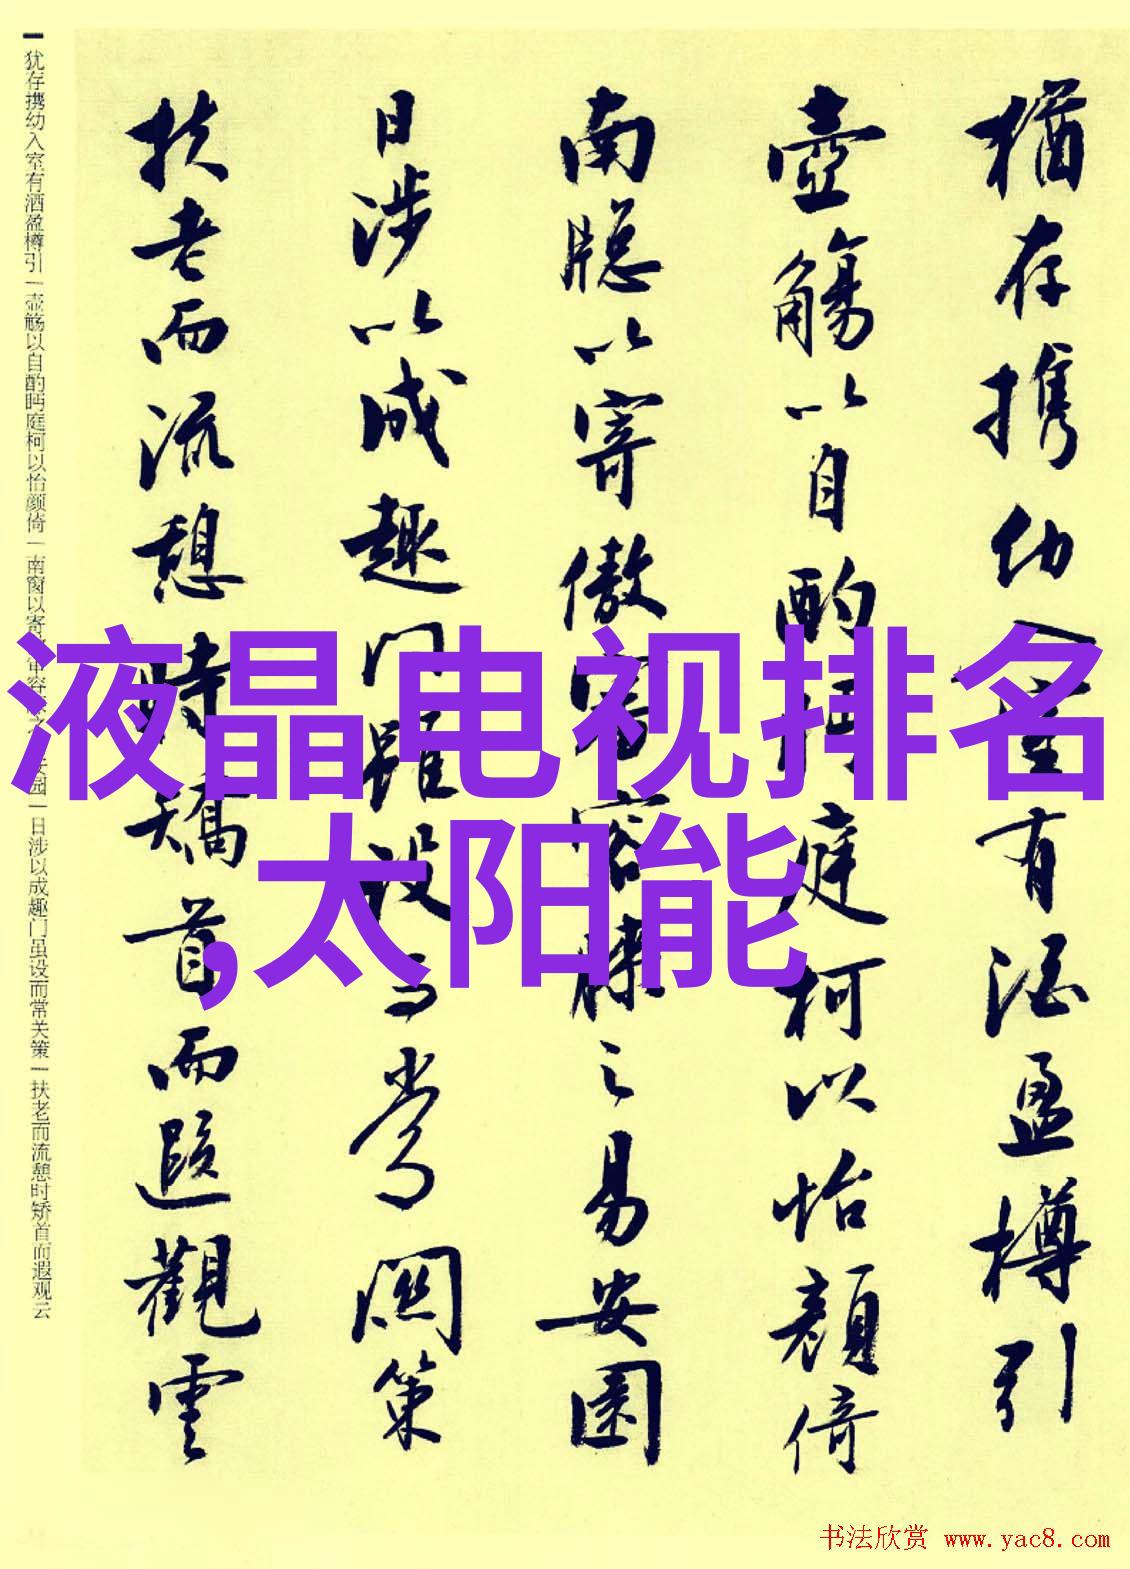 犹存携幼入室有酒盈樽引一壶觞以自酌眄庭柯以怡颜倚一南窗以寄
园一日涉以成趣门虽设而常关策一扶老而流憩时矫首而遐观云
猶存攜幼入室有酒盈樽引
壺觴以自酌
庭柯以怡顏倚
南牕以寄傲
容膝之易安園
日涉以成趣門雖設而常關策
扶老而流憩時矯首而遐觀雲
液晶电视排名
,太阳能
书法欣赏 www.yac8.com